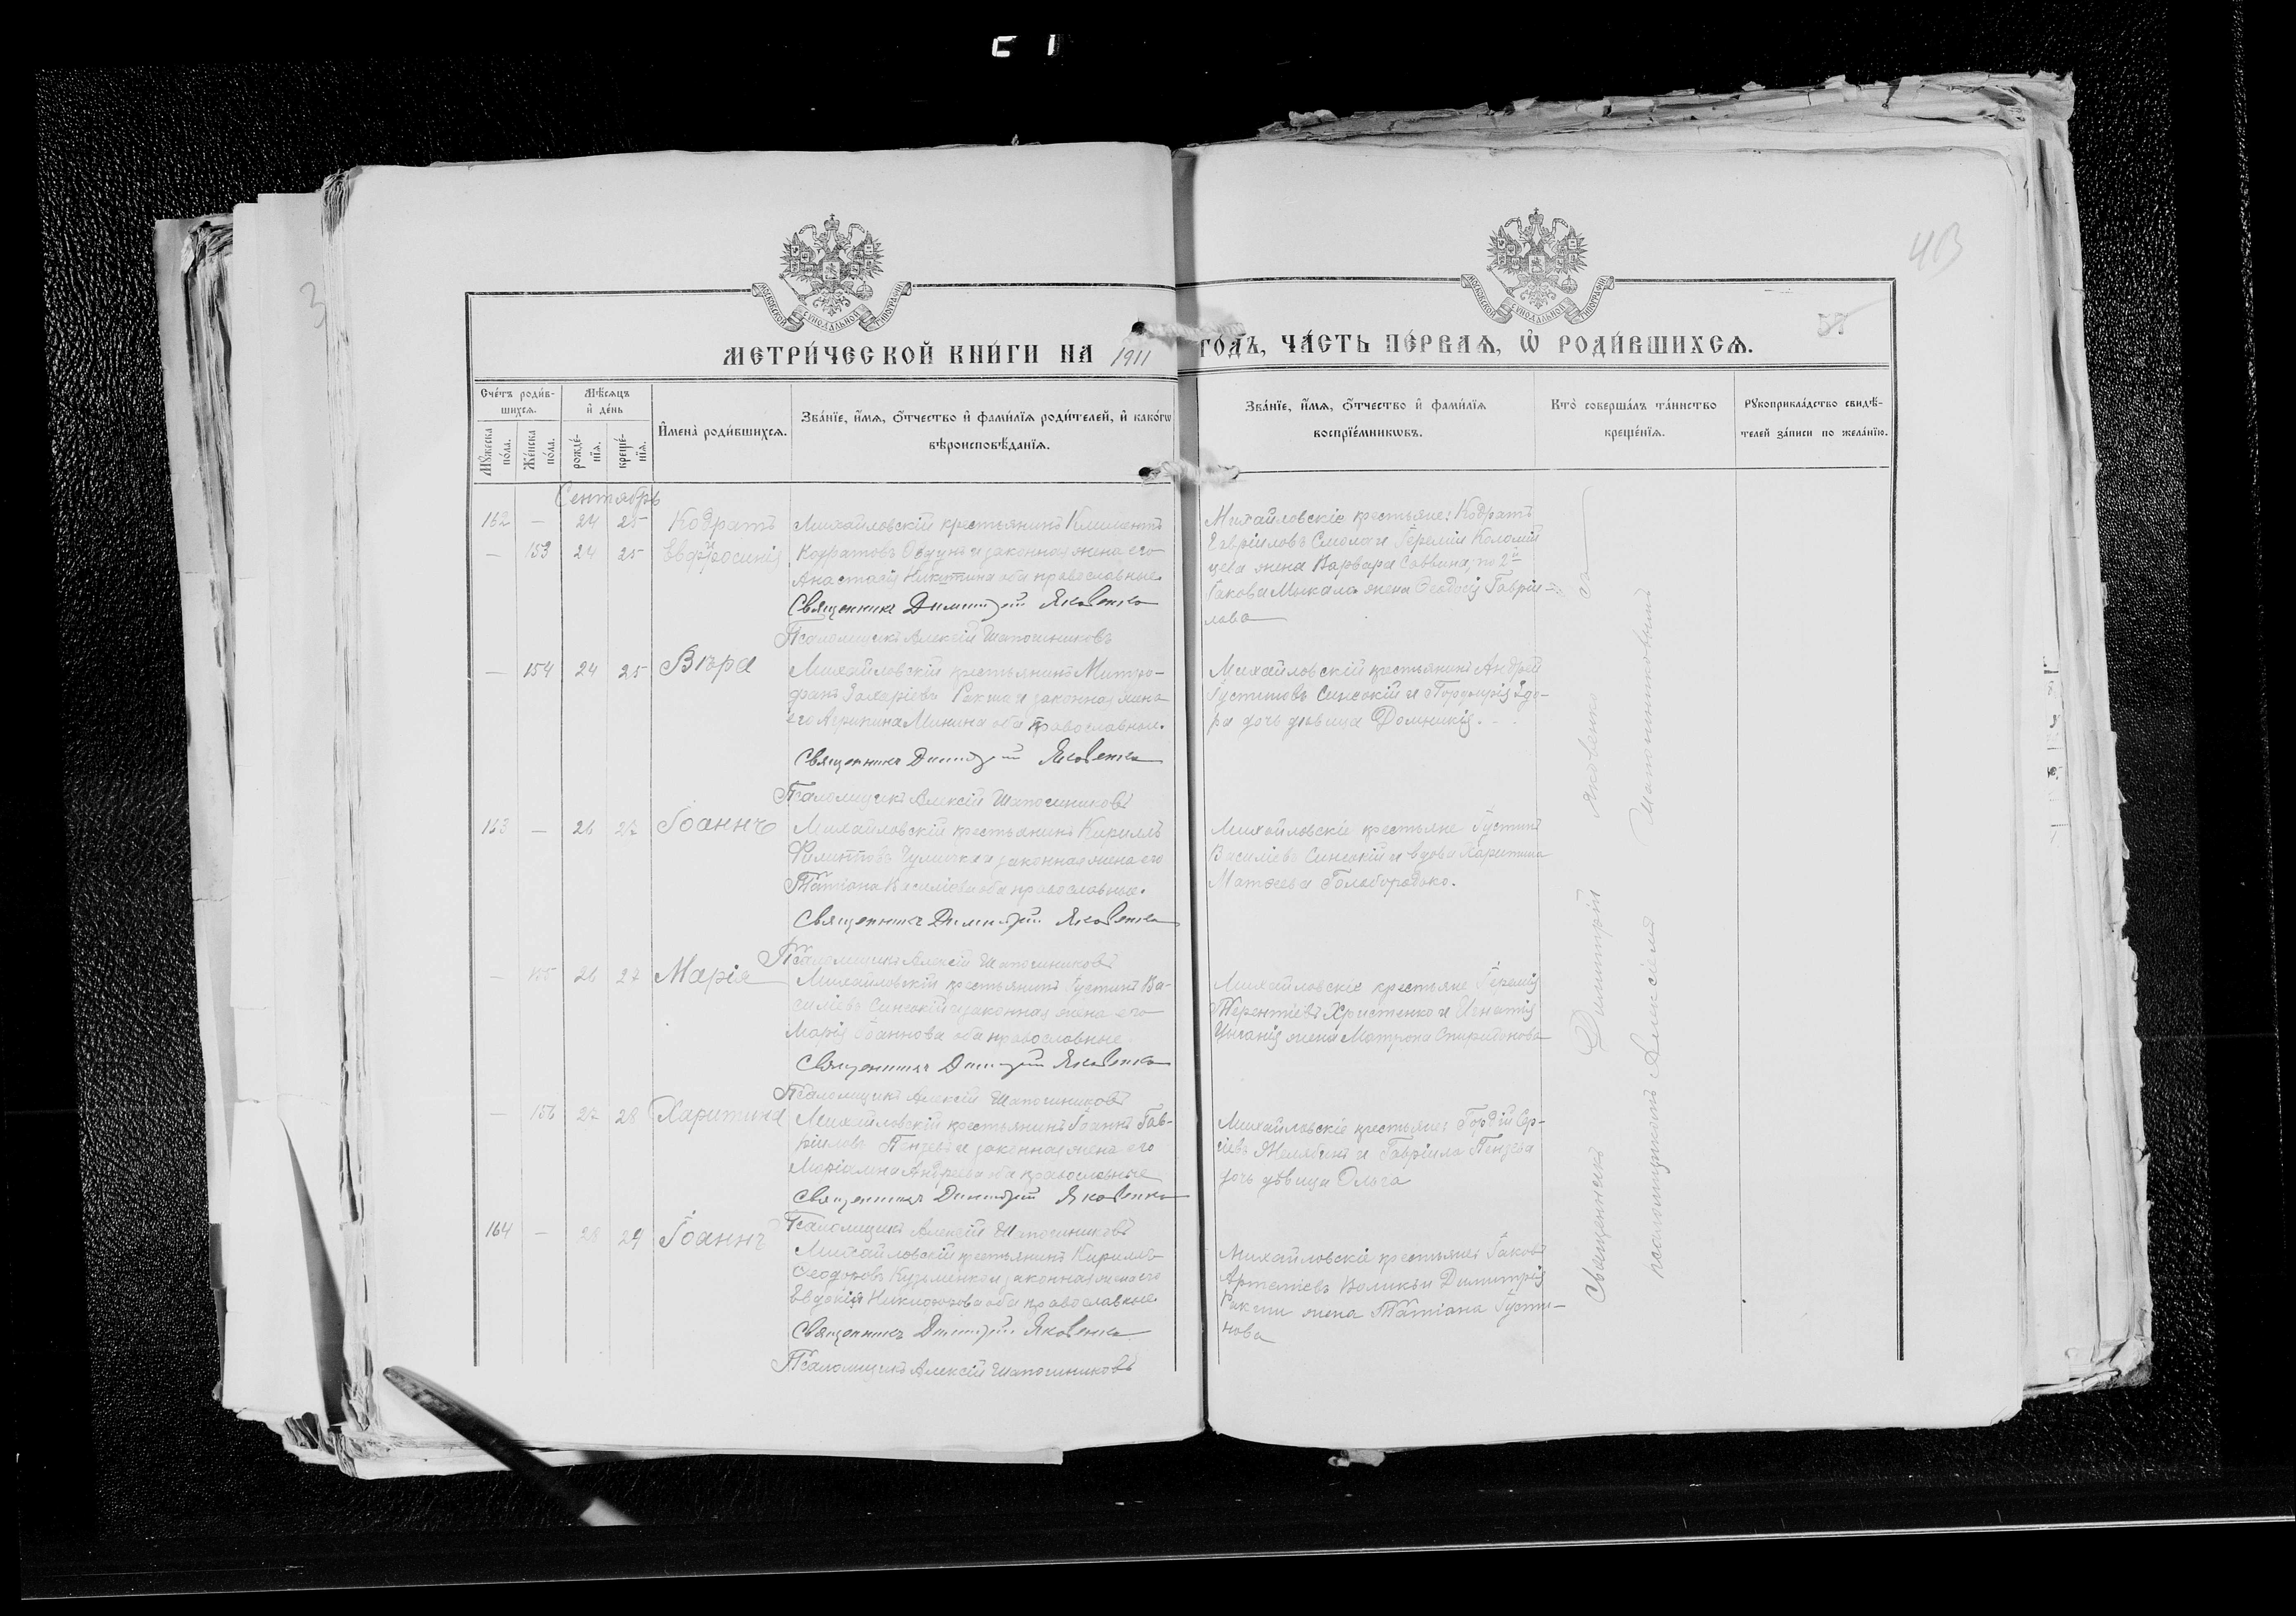 43
55
3
МОСКОВСКОЙ СѴНОДАЛЬНОЙ ТИПОГРАФІИ
МОСКОВСКОЙ СѴНОДАЛЬНОЙ ТИПОГРАФІИ
МЕТРИ́ЧЕСКОЙ КНИ́ГИ НА 1911 ГО́ДЪ, ЧА́СТЬ ПЕ́РВАЯ, Ѡ РОДИ́ВШИХСЯ.
Сче́тъ роди́в-
шихся.
Мꙋ́жеска по́ла.
Же́нска по́ла.
Мѣ́сяцъ
и̂ де́нь
рожде́-
нїя.
креще́-
нїя.
И̂мена̀ роди́вшихся.
Зва́нїе, и̂́мя, ѻ̂́тчество и̂ фами́лїя роди́телей, и̂ како́гѡ
вѣроисповѣ́данїя.
Зва́нїе, и̂́мя, ѻ̂́тчество и̂ фами́лїя
воспрїе́мникѡвъ.
Кто̀ соверша́лъ та́инство
креще́нїя.
Рꙋкоприкла́дство свидѣ́-
телей за́писи по жела́нїю.
Сентябрь
162 — 24 25 Кодратъ Михайловскій крестьянинъ Климентъ
— 153 24 25 Евфросинія Кодратовъ и законная жена его
Анастасія Никитина оба православные.
Священникъ Димитрій Яковенко
Псаломщикъ Алексій Шапошниковъ
Михайловскіе крестьяне: Кодратъ
Гавріиловъ Смола и Іеремія Коломій
цева жена Варвара Саввина; по 2й
Іакова Мыкала жена Ѳеодосія Гаврії-
лова
— 154 24 25 Вѣра Михайловскій крестьянинъ Митро-
фанъ Захаріевъ Ракша и законная жена
его Агрипина Минина оба православные.
Священникъ Димитрій Яковенко
Псаломщикъ Алексій Шапошниковъ
Михайловскій крестьянинъ Андрей
Іустиновъ Синєокій и Порфирія
дочь дѣвица Домникія.
163 — 26 27 Іоаннъ Михайловскій крестьянинъ Кириллъ
Филиповъ и законная жена его
Татіана Василіева оба православные.
Священникъ Димитрій Яковенко
Псаломщикъ Алексій Шапошниковъ
Михайловскіе крестьяне Іустинъ
Василіевъ Синеокій и вдова Харитина
Матѳеева Голобородько.
— 155 26 27 Марія Михайловскій крестьянинъ Іустинъ Ва-
силіевъ Синеокій и законная жена его
Марія Іоаннова оба православные
Священникъ Димитрій Яковенко
Псаломщикъ Алексій Шапошниковъ
Михайловскіе крестьяне Іеремія
Терентіевъ Христенко и Игнатія
жена Матрона Спиридонова
— 156 27 28 Харитина Михайловскій крестьянинъ Іоаннъ Гав-
ріиловъ Пензевъ и законная жена его
Маріамна Андреева оба православные
Священникъ Димитрій Яковенко
Псаломщикъ Алексій Шапошниковъ
Михайловскіе крестьяне: Гордій Сер-
гіевъ и Гавріила Пензева
дочь дѣвица Ольга
164 — 28 29 Іоаннъ Михайловскій крестьянинъ Кириллъ
Ѳеодоровъ Кузьменко и законная жена его
Евдокія Никифорова оба православные.
Священникъ Димитрій Яковенко
Псаломщикъ Алексій Шапошниковъ
Михайловскіе крестьяне: Іаковъ
Артеміевъ и Димитрія
Ракши жена Татіана Іусти-
нова
Священникъ Димитрій Яковенко съ
псаломщикомъ Алексіемъ Шапошниковымъ